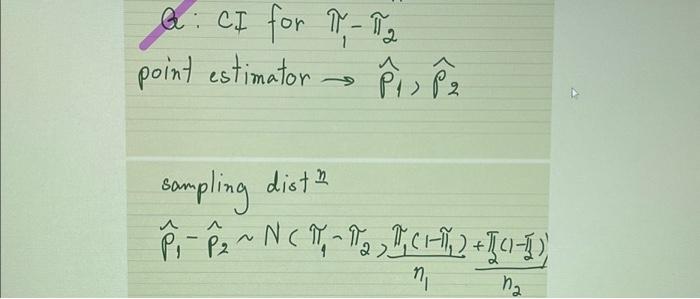 Q: CI for π₁ - π₂
point estimator → p̂₁, p̂₂
sampling distⁿ
p̂₁ - p̂₂ ~ N( π₁ - π₂, π₁(1-π₁)/n₁ + π₂(1-π₂)/n₂ )